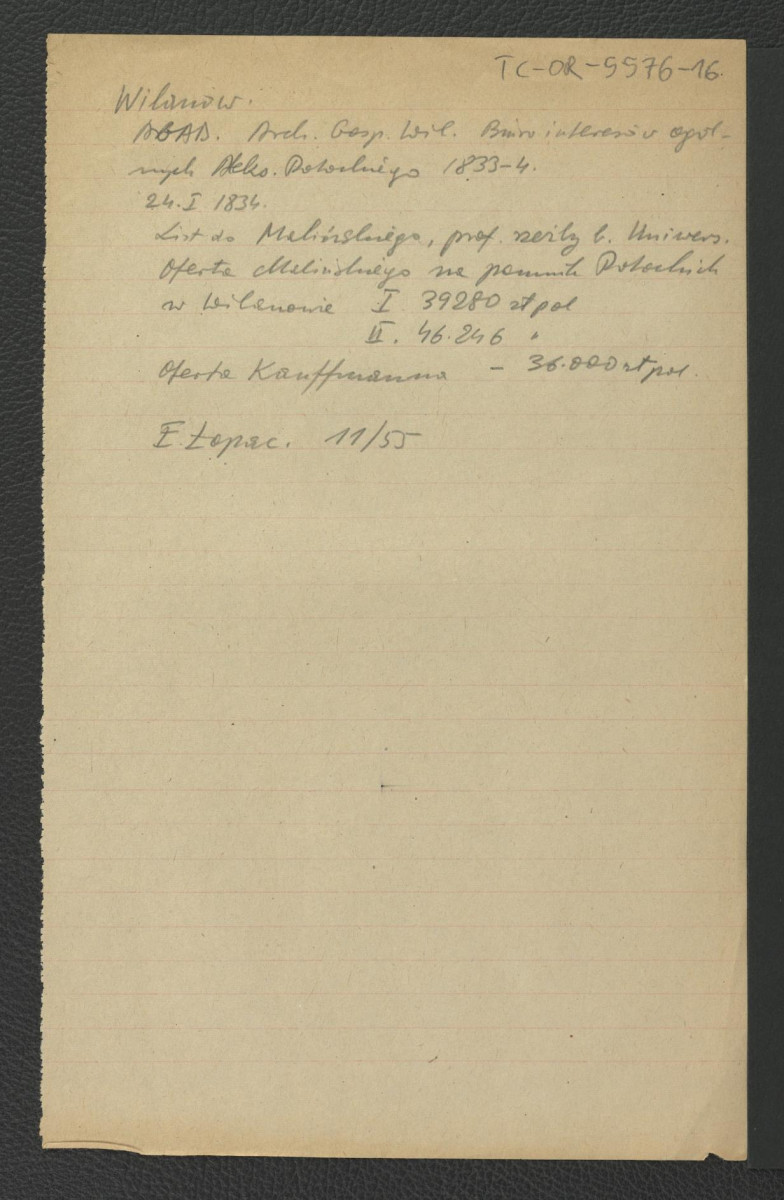 TC-OR-5576-16.
Wilanów.
AGAD. Arch. Gosp. Wil. Biuro interesów ogól-
nych Aleks. Potockiego 1833-4.
24.I 1834.
List do Malińskiego, prof. rzeźby b. Uniwers.
Oferta Malińskiego na pomnik Potockich
w Wilanowie I 39280 zł pol
II. 46.246 "
Oferta Kauffmanna - 36.000 zł pol.
E. Łopac. 11/55